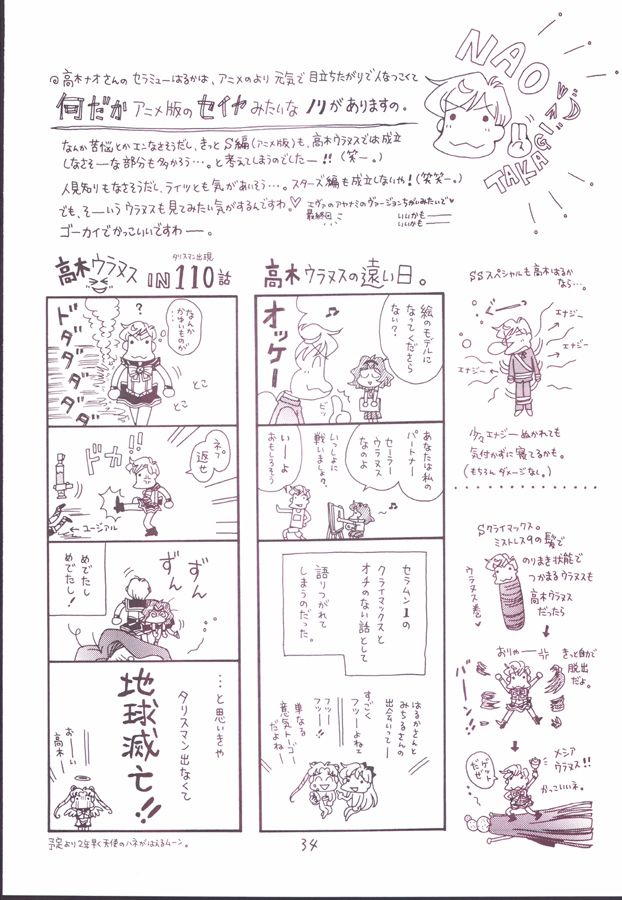 NAO
TAKAGI
◎高木ナオさんのセラミューはるかは、アニメのより元気で目立ちたがりで人なつっこくて
何だかアニメ版のセイヤみたいなノリがありますの。
なんか苦悩とかエンなさそうだし、きっとS編(アニメ版)も、高木ウラヌスでは成立
しなさそーな部分も多かろう…。と考えてしまうのでしたー!!(笑ー。)
人見知りもなさそうだし、ライツとも気があいそう…。スターズ編も成立しないや!(笑笑ー。)
でも、そーいうウラヌスも見てみたい気がするんですわ。♡
エヴァのアヤナミのヴァージョンちがいみたいで♥
最終回
いいかもー
いいかもー
ゴーカイでかっこいいですわー。
高木ウラヌス IN 110話
タリスマン出現
なんか
かゆいものが…
?
ドダダダダダ
とこ
とこ
ネプ
返せ
ドカ!!
←ユージアル
ずん
ずん
めでたし
めでたし!
…と思いきや
タリスマン出なくて
地球滅亡!!
おーい
高木ー
予定より2年早く天使のハネがはえるムーン。
高木ウラヌスの遠い日。
絵のモデルに
なってくださら
ない?
♪
オッケー
ビッ
あなたは私の
パートナー
セーラー
ウラヌス
なのよ
いっしょに
戦いましょ?
いーよ
おもしろそう
♪
セラムン1の
クライマックスと
オチのない話として
語りつがれて
しまうのだった。
はるかさんと
みちるさんの
出会いってー
すごく
フツーよねェ
フツー!!
フッー!
単なる
意気トーゴー
だよねー
SSスペシャルも高木はるか
なら…。
ぐー
エナジー
エナジー
エナジー
少々エナジーぬかれても
気付かずに寝てるかも。
(もちろんダメージなし。)
Sクライマックス。
ミストレス9の髪で
のりまき状態で
つかまるウラヌスも
高木ウラヌス
だったら
ウラヌス巻♥
おりゃー
きっと自力で
脱出
だよ。
バーン!!
メシア
ウラヌス!!
かっこいいネ。
ゲット
だぜ
34